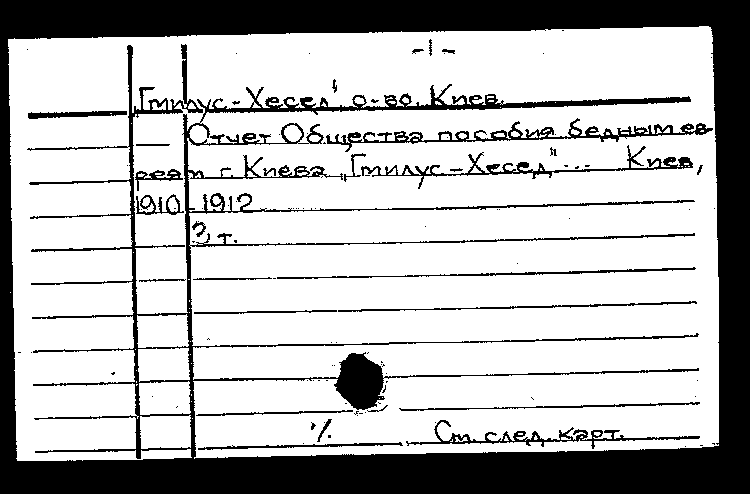 -1-
„Гмилус-Хесед" о-во. Киев.
— Отчет Общества пособия бедным ев-
реям г. Киева „Гмилус-Хесед"... Киев,
1910-1912
3 т.
См. след. карт.